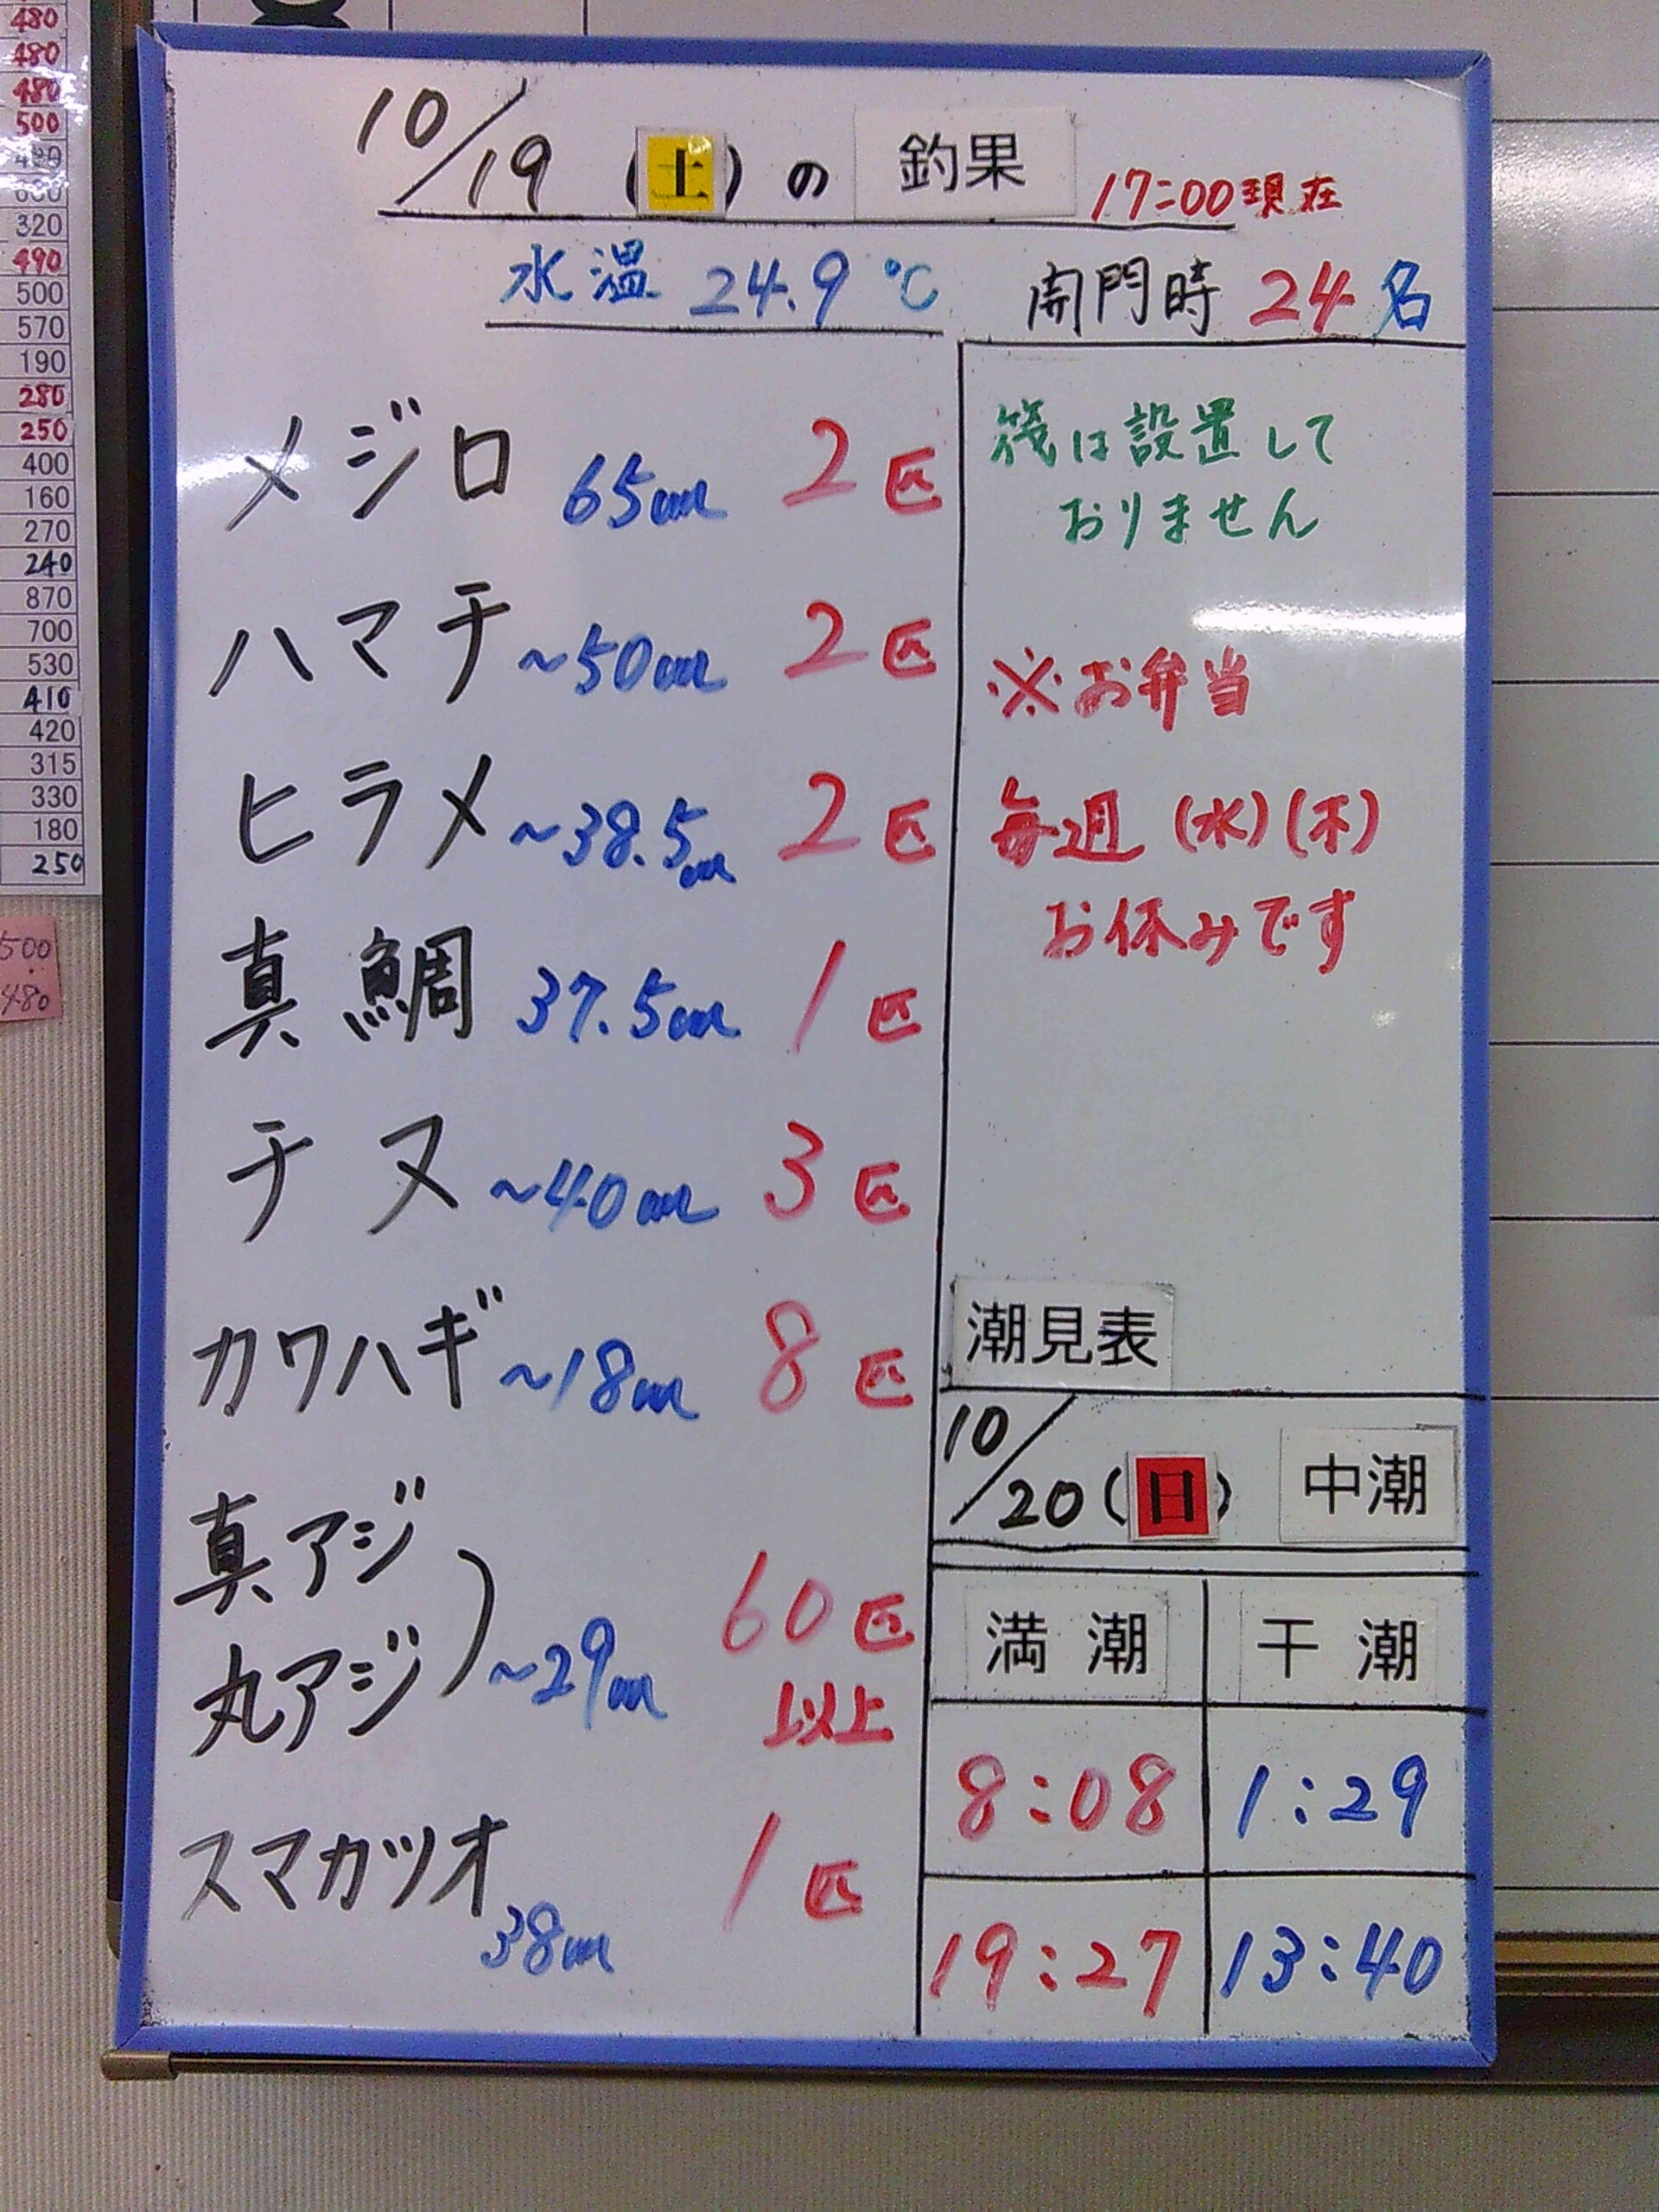 10/19(土)の 釣果 17:00現在
水温 24.9℃ 開門時 24名
メジロ 65cm 2匹
ハマチ ~50cm 2匹
ヒラメ ~38.5cm 2匹
真鯛 37.5cm 1匹
チヌ ~40cm 3匹
カワハギ ~18cm 8匹
真アジ
丸アジ) ~29cm 60匹
以上
スマカツオ 38cm 1匹
筏は設置して
おりません
※お弁当
毎週(水)(木)
お休みです
潮見表
10/20(日) 中潮
満潮 干潮
8:08 1:29
19:27 13:40
480
480
480
500
320
490
500
570
190
280
250
400
160
270
240
870
700
530
410
420
315
330
180
250
500
480